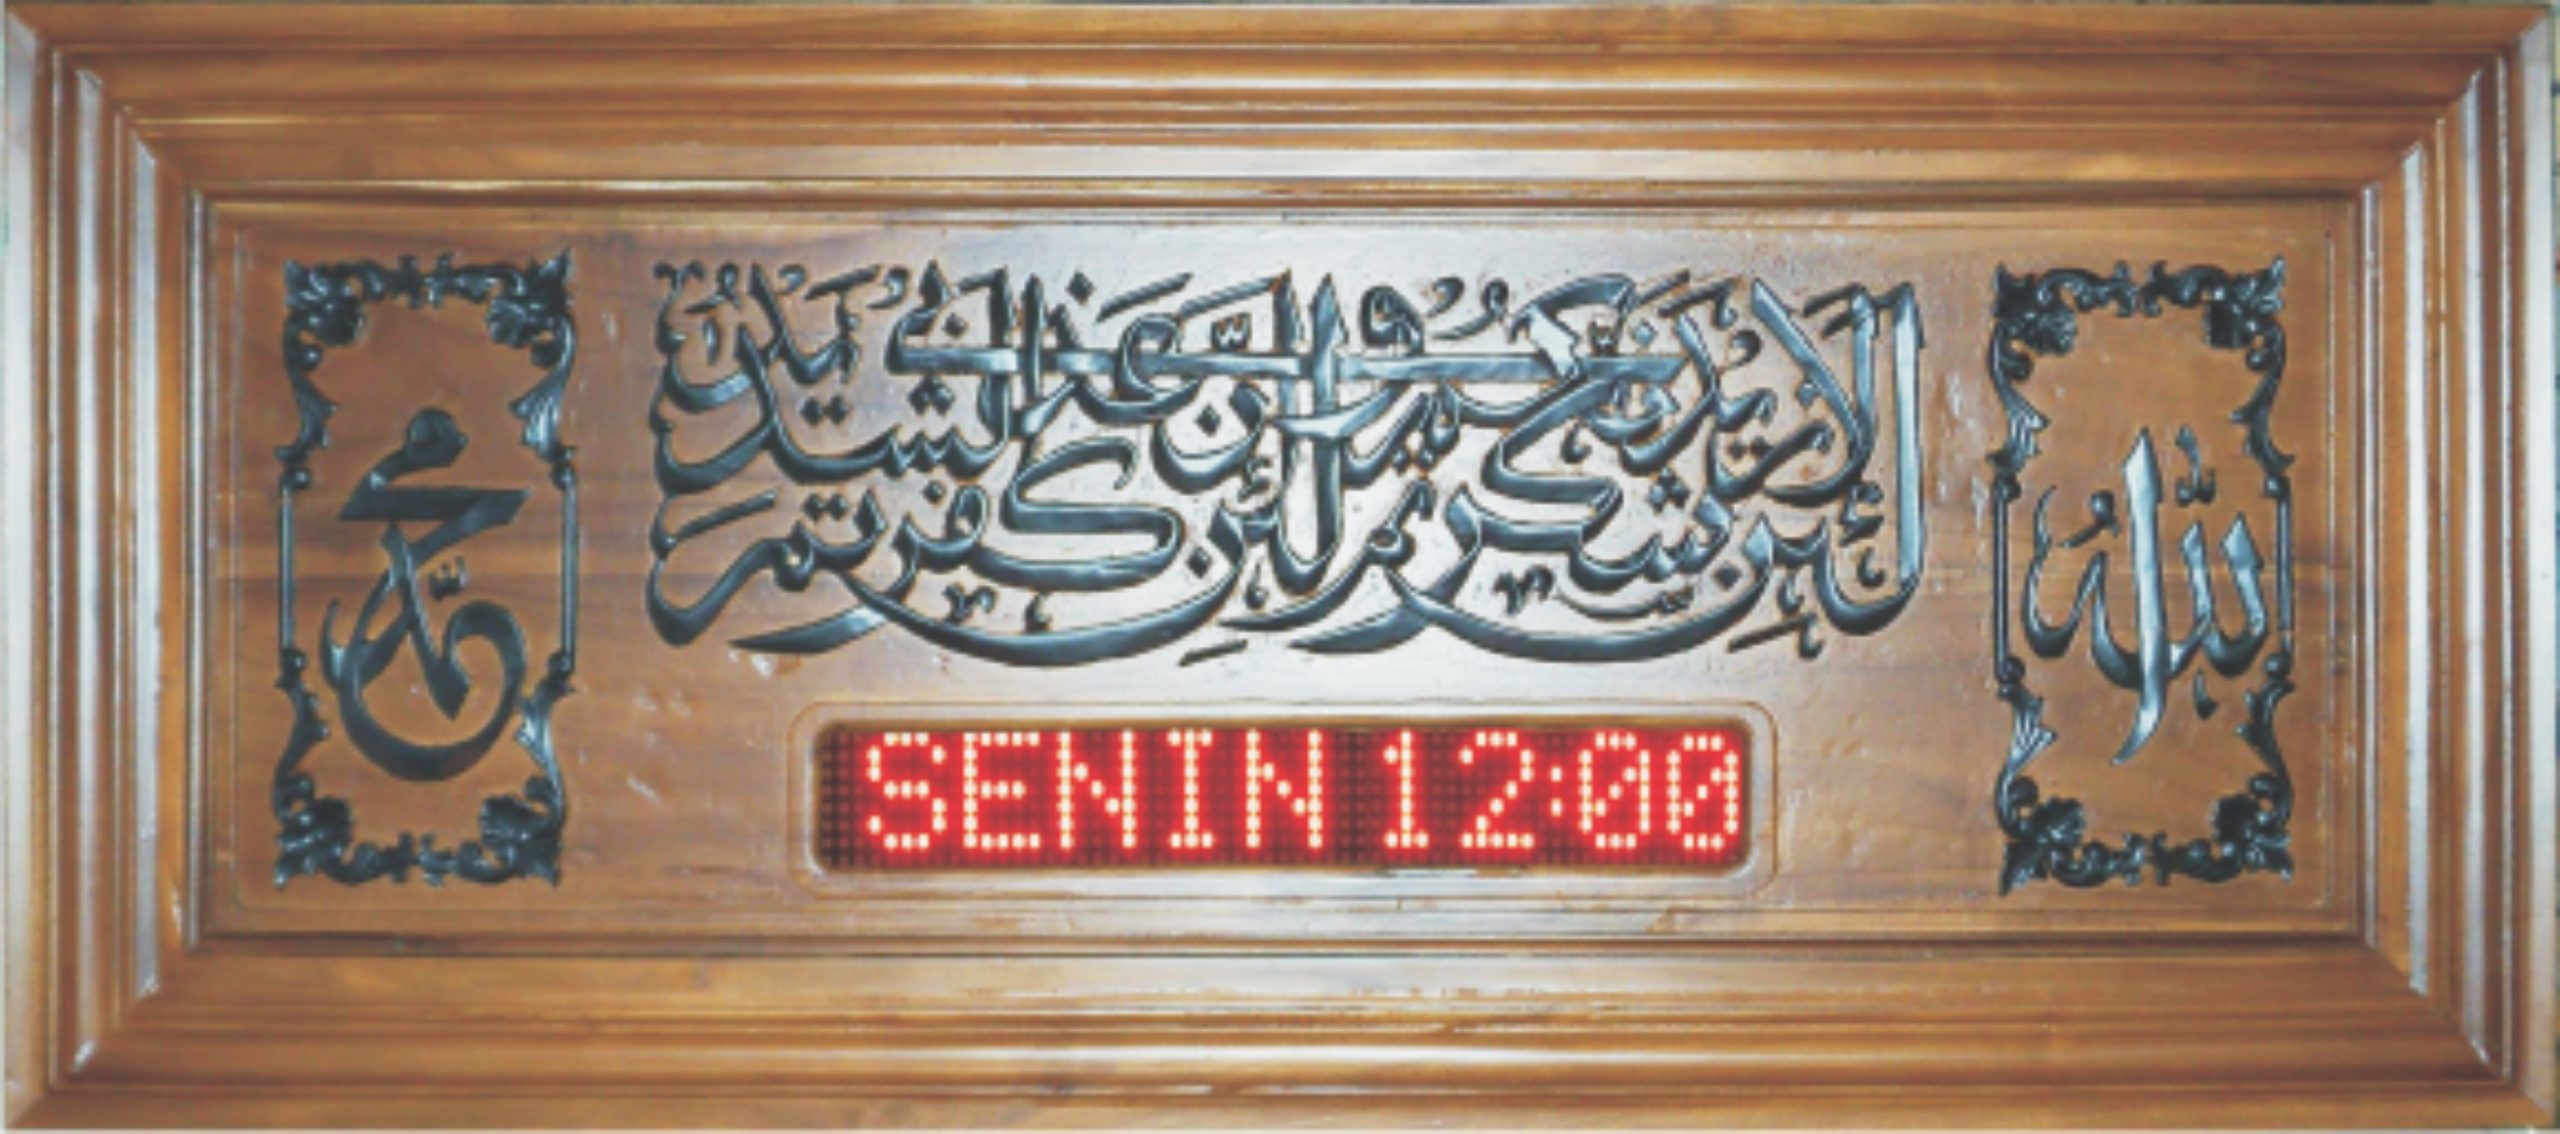 الله
لئن شكرتم لأزيدنكم ولئن كفرتم إن عذابي لشديد
محمد
SENIN 12:00